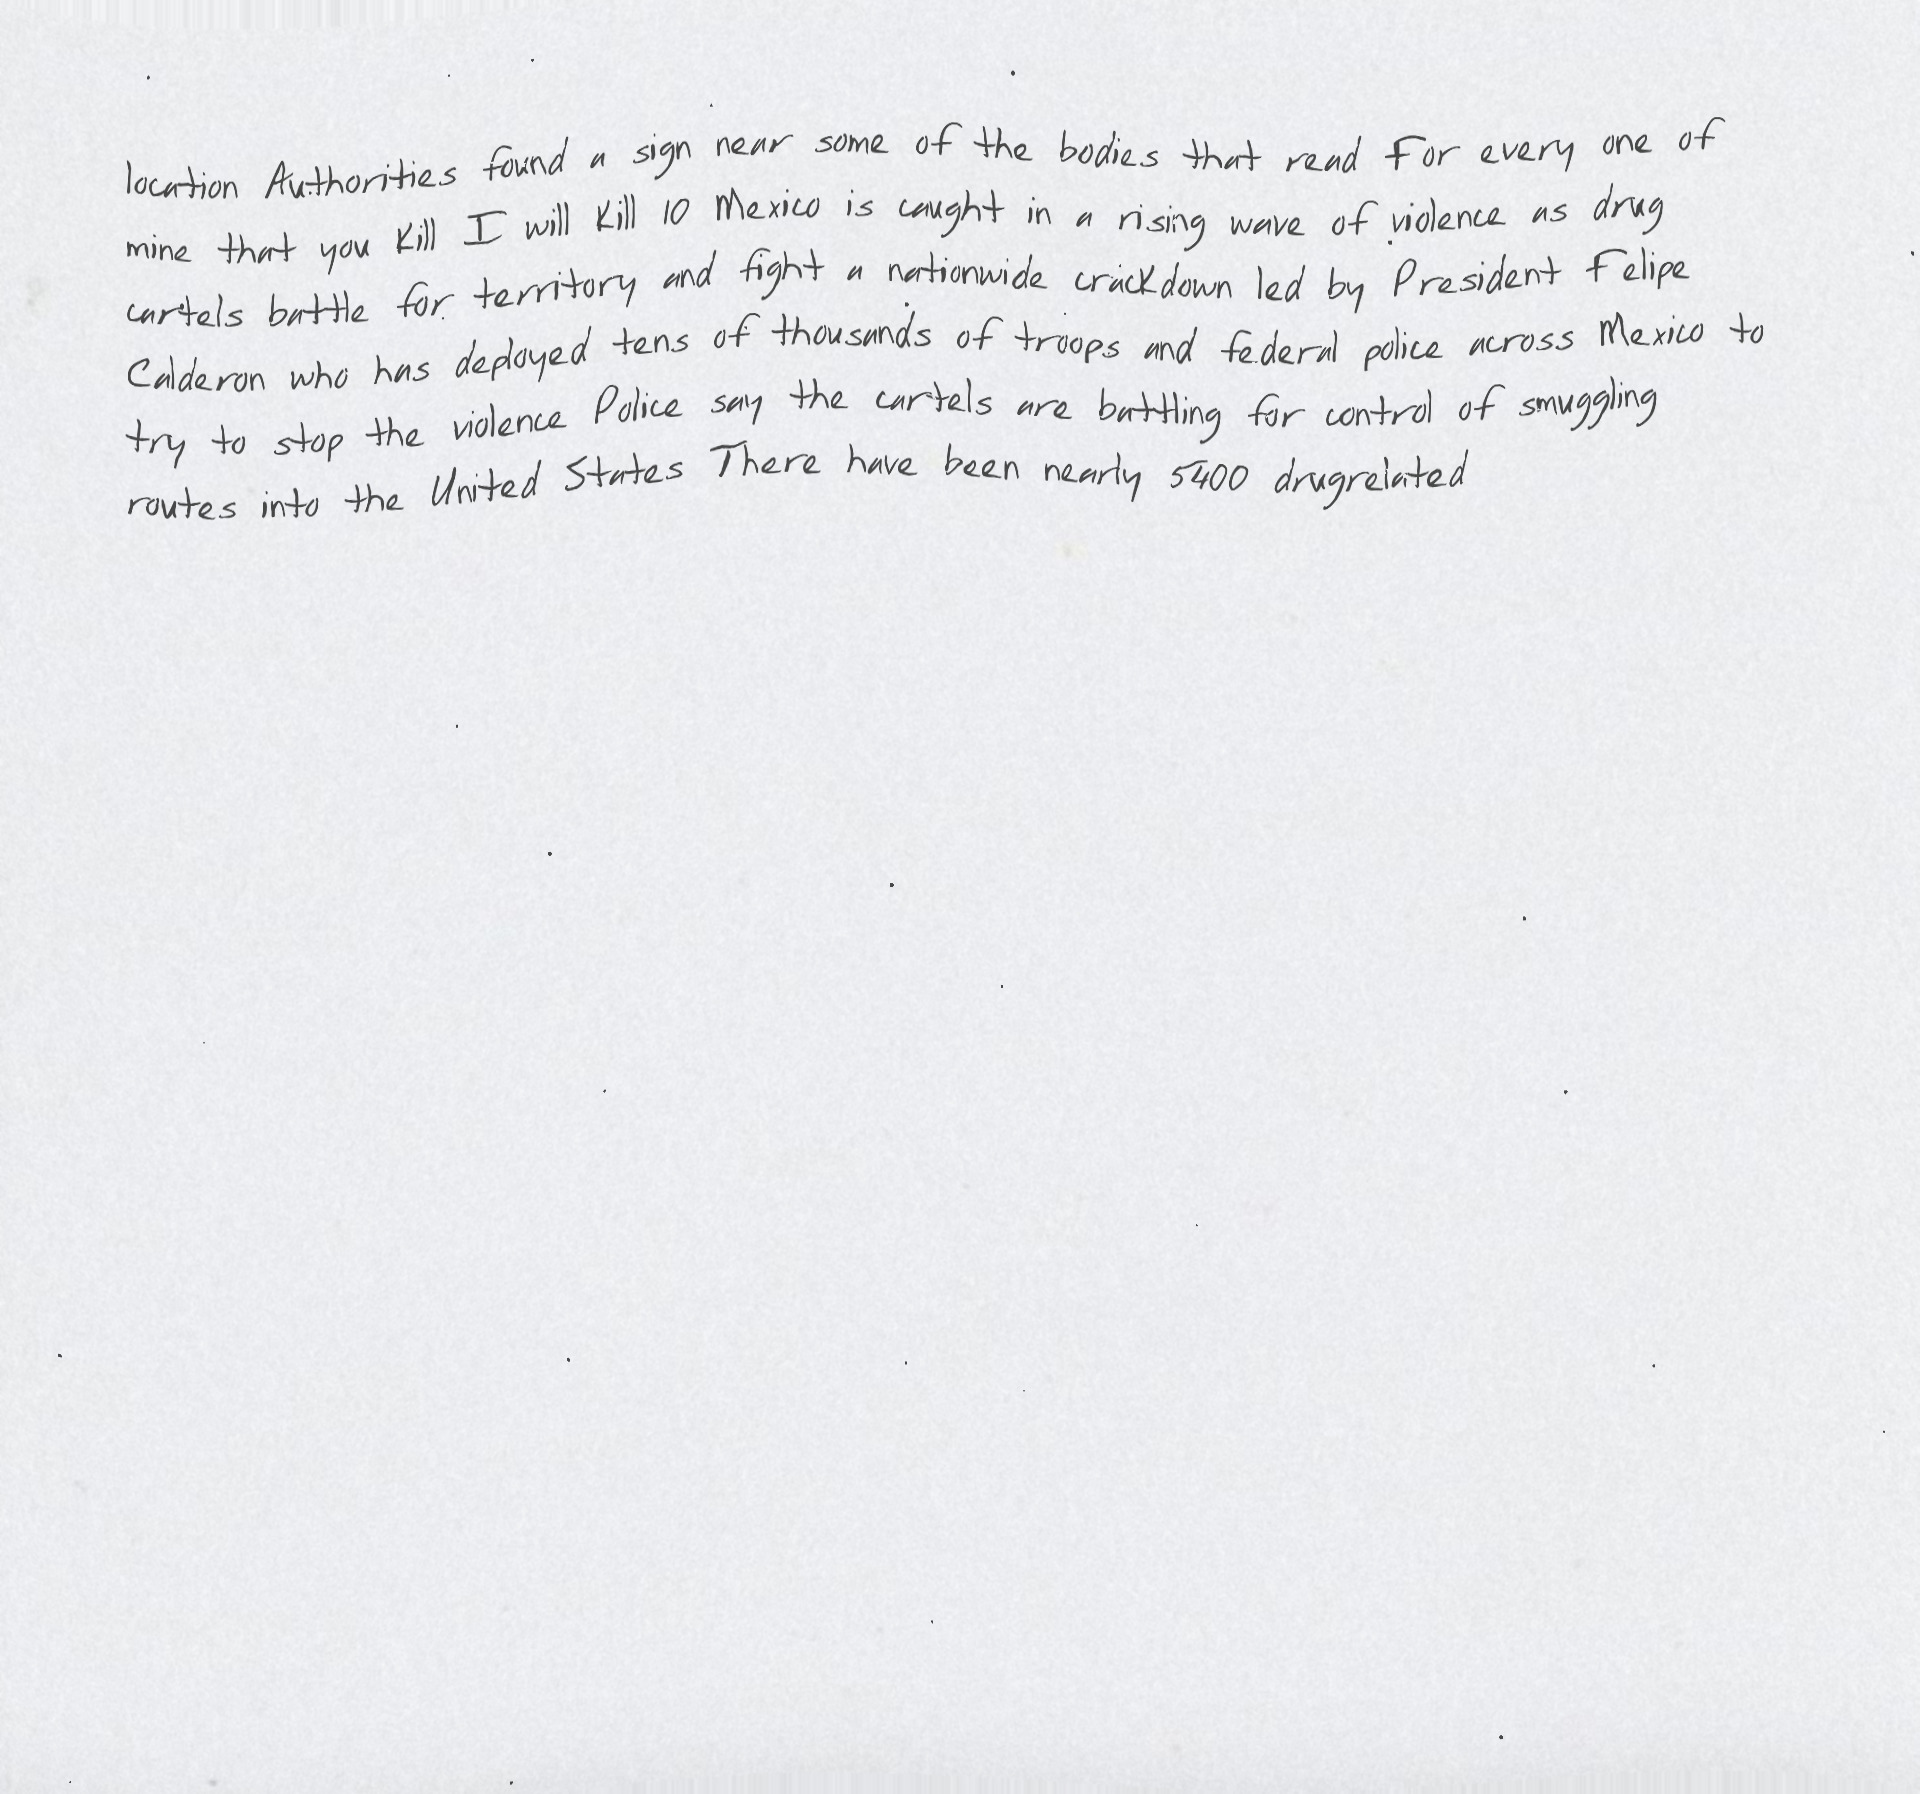 location Authorities found a sign near some of the bodies that read For every one of
mine that you kill I will kill 10 Mexico is caught in a rising wave of violence as drug
cartels battle for territory and fight a nationwide crackdown led by President Felipe
Calderon who has deployed tens of thousands of troops and federal police across Mexico to
try to stop the violence Police say the cartels are battling for control of smuggling
routes into the United States There have been nearly 5400 drugrelated